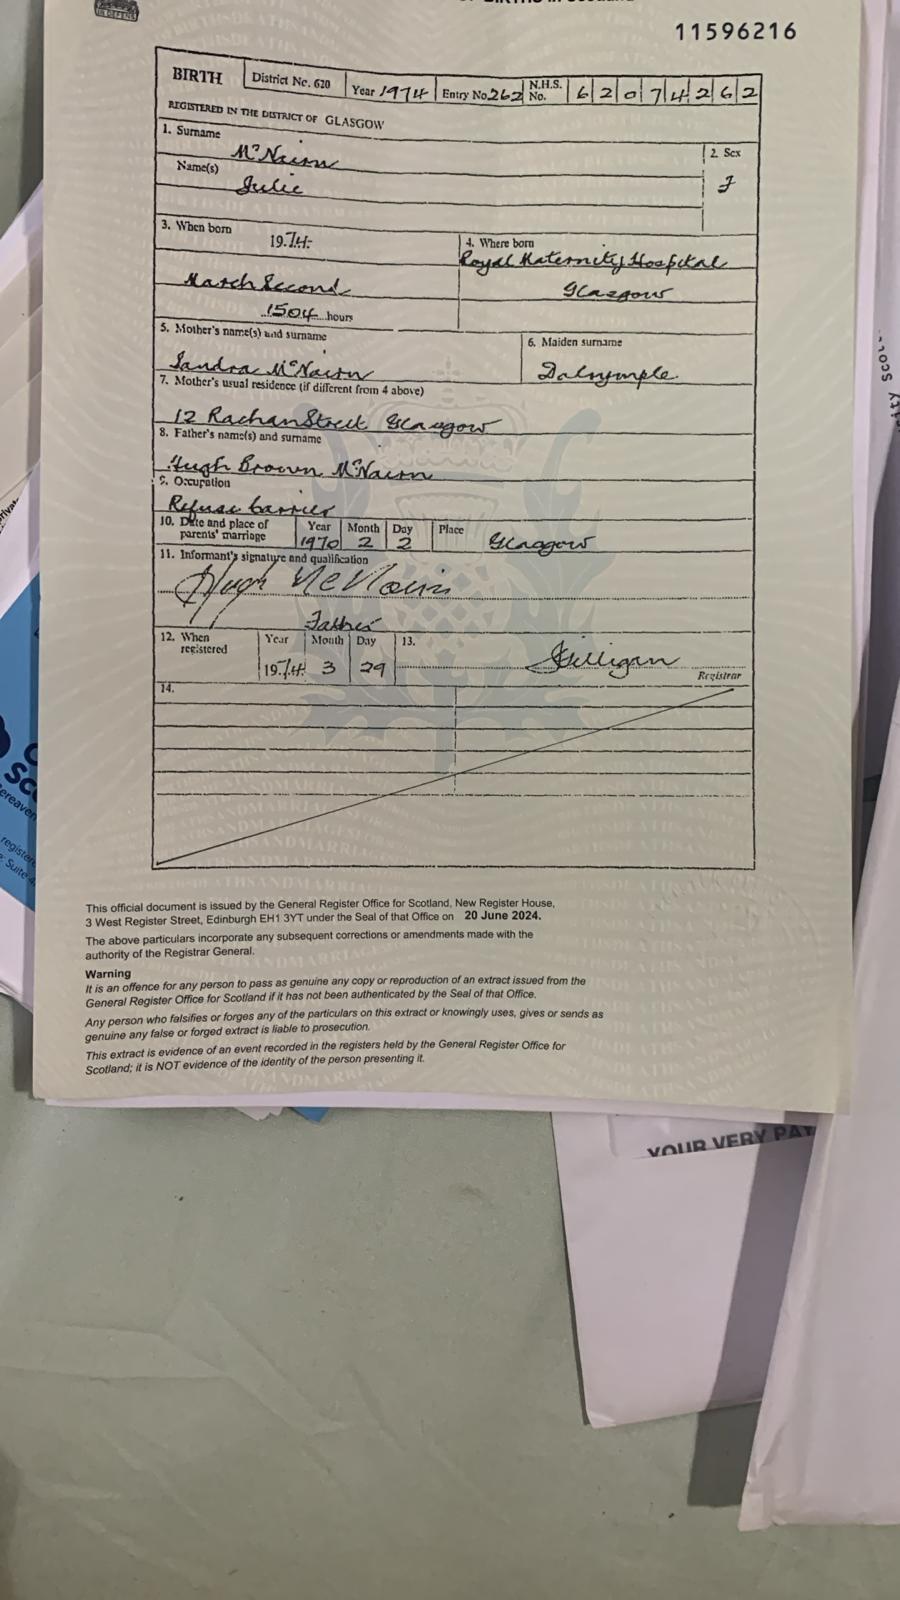 11596216
BIRTH District No. 620 Year 1974 Entry No. 262 N.H.S. No. 6 2 0 7 4 2 6 2
REGISTERED IN THE DISTRICT OF GLASGOW
1. Surname
McNairn
2. Sex
Name(s)
Julie
F
3. When born
1974
4. Where born
Royal Maternity Hospital
March Second
Glasgow
1504 hours
5. Mother's name(s) and surname
6. Maiden surname
Sandra McNairn
Dalrymple
7. Mother's usual residence (if different from 4 above)
12 Rachan Street Glasgow
8. Father's name(s) and surname
Hugh Brown McNairn
9. Occupation
Refuse Carrier
10. Date and place of parents' marriage
Year Month Day Place
1970 2 2 Glasgow
11. Informant's signature and qualification
Hugh McNairn
Father
12. When registered
Year Month Day 13.
1974 3 29 Gilligan
Registrar
14.
This official document is issued by the General Register Office for Scotland, New Register House,
3 West Register Street, Edinburgh EH1 3YT under the Seal of that Office on 20 June 2024.
The above particulars incorporate any subsequent corrections or amendments made with the
authority of the Registrar General.
Warning
It is an offence for any person to pass as genuine any copy or reproduction of an extract issued from the
General Register Office for Scotland if it has not been authenticated by the Seal of that Office.
Any person who falsifies or forges any of the particulars on this extract or knowingly uses, gives or sends as
genuine any false or forged extract is liable to prosecution.
This extract is evidence of an event recorded in the registers held by the General Register Office for
Scotland; it is NOT evidence of the identity of the person presenting it.
YOUR VERY